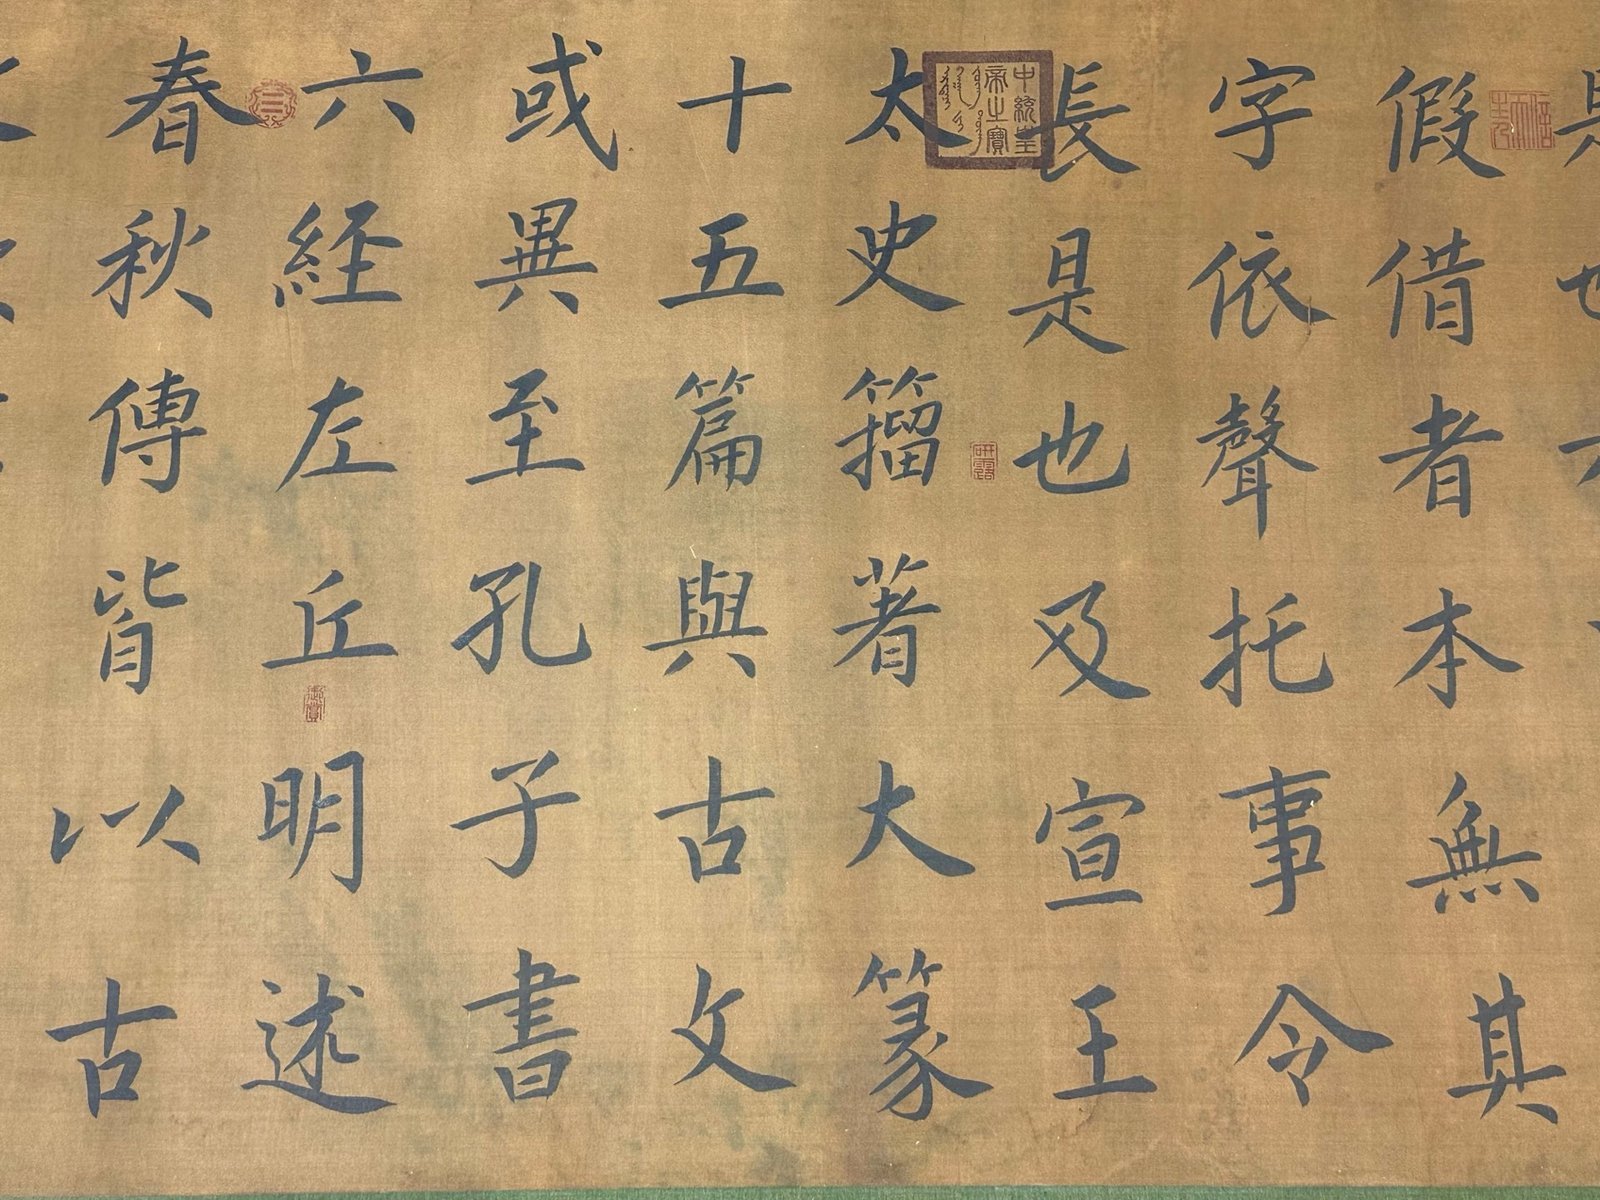 假借者本無其
字依聲托事令
長是也及宣王
太史籀著大篆
十五篇與古文
或異至孔子書
六經左丘明述
春秋傳皆以古
中統皇
帝之寶
研露
御賞